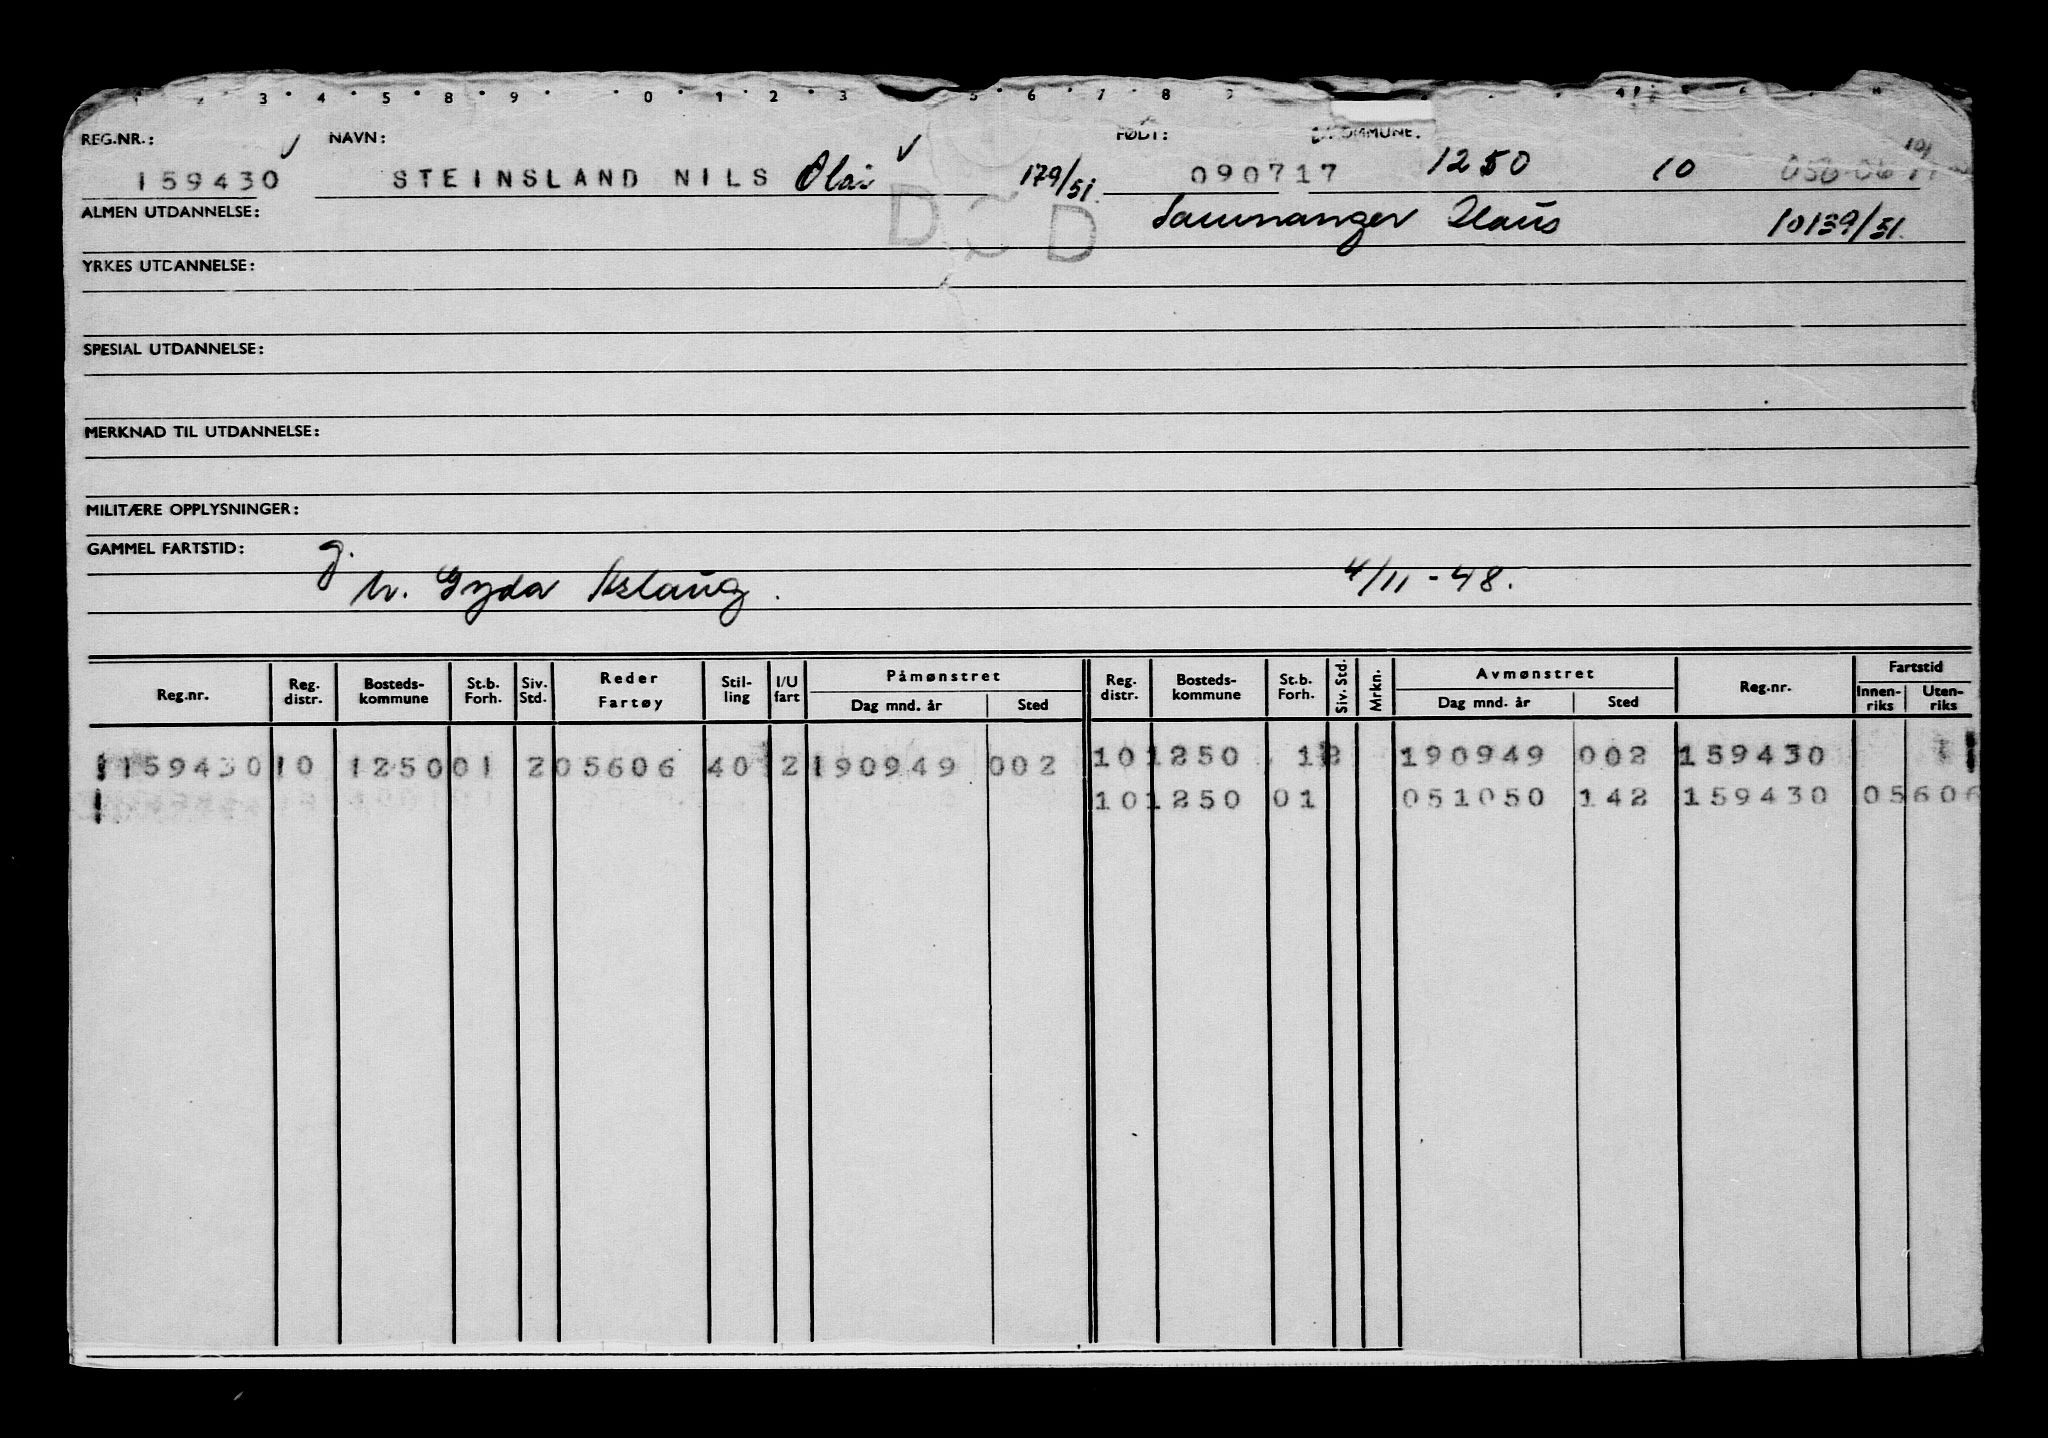 REG.NR.: NAVN: FØDT: KOMMUNE.
159430 STEINSLAND NILS Olai 179/51. 090717 1250 10
ALMEN UTDANNELSE: DØD Samnanger Haus 10139/51.
YRKES UTDANNELSE:
SPESIAL UTDANNELSE:
MERKNAD TIL UTDANNELSE:
MILITÆRE OPPLYSNINGER:
GAMMEL FARTSTID: g.
h. Gyda Aslaug. 4/11-48.
Reg.nr. Reg. distr. Bosteds-kommune St.b. Forh. Siv. Std. Reder Fartøy Stil-ling I/U fart Påmønstret Dag mnd. år Sted Reg. distr. Bosteds-kommune St.b. Forh. Siv. Std. Mrkn. Avmønstret Dag mnd. år Sted Reg.nr. Fartstid Innen-riks Uten-riks
159430 10 1250 01 2 05606 40 2 190949 002 10 1250 1 190949 002 159430
10 1250 01 051050 142 159430 05606